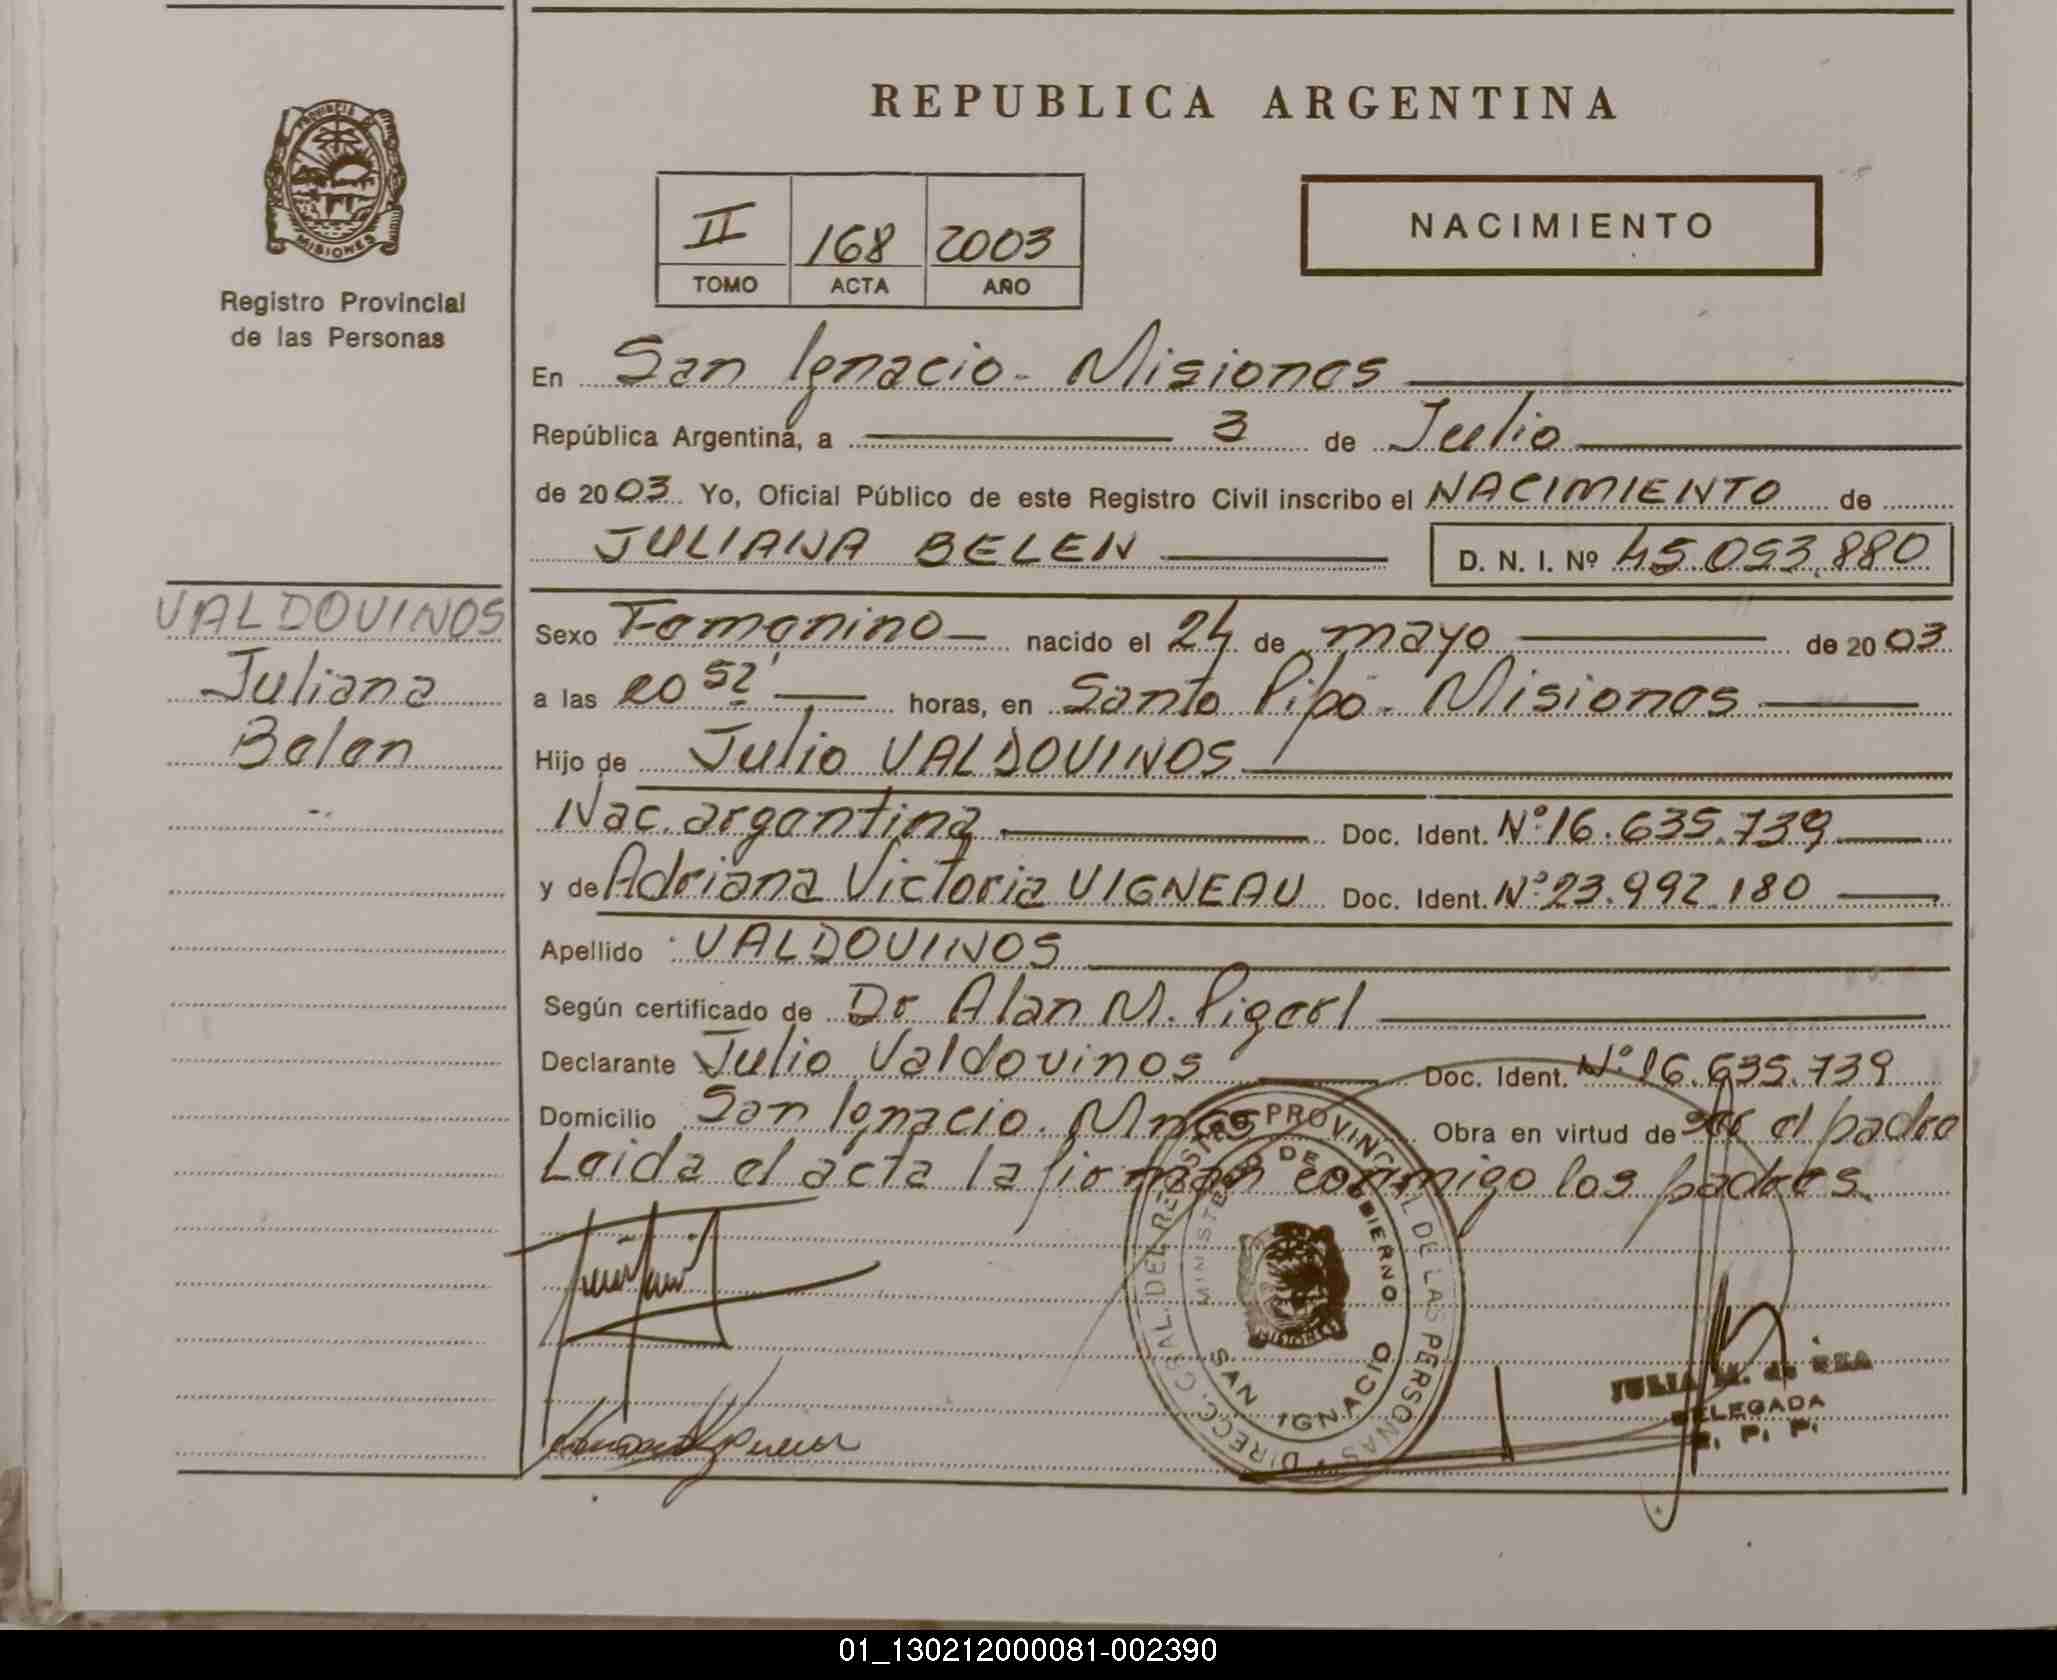 REPUBLICA ARGENTINA
PROVINCIA DE
MISIONES
Registro Provincial
de las Personas
II 168 2003
TOMO ACTA AÑO
NACIMIENTO
En San Ignacio - Misiones
República Argentina, a 3 de Julio
de 2003 Yo, Oficial Público de este Registro Civil inscribo el NACIMIENTO de
JULIANA BELEN D. N. I. Nº 45.053.880
VALDOVINOS
Juliana
Belen
Sexo Femenino nacido el 24 de mayo de 2003
a las 20 52' horas, en Santo Pipó - Misiones
Hijo de Julio VALDOVINOS
Nac. argentina Doc. Ident. Nº 16.635.739
y de Adriana Victoria VIGNEAU Doc. Ident. Nº 23.992.180
Apellido VALDOVINOS
Según certificado de Dr Alan M. Pigerl
Declarante Julio Valdovinos Doc. Ident. Nº 16.635.739
Domicilio San Ignacio. Mnes Obra en virtud de ser el padre
Leida el acta la firman conmigo los padres.
DIRECC. GRAL. DEL REGISTRO PROVINCIAL DE LAS PERSONAS
MINISTERIO DE GOBIERNO
MISIONES
SAN IGNACIO
JULIA M. de REA
DELEGADA
R. P. P.
01_130212000081-002390